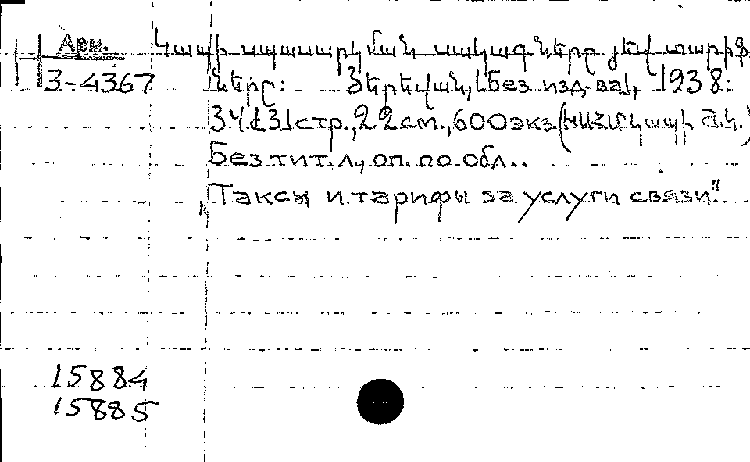 Арм.
Կապի սպասարկման սակագները յեվ տարիֆ
3-4367 ները: Յերեվան, [Без изд-ва], 1938:
34 [3] стр., 22 см., 600 экз. (ԽՍՀՄ Կապի Ժ.Կ.)
Без тит. л., оп. по обл..
„Таксы и тарифы за услуги связи".
15884
15885